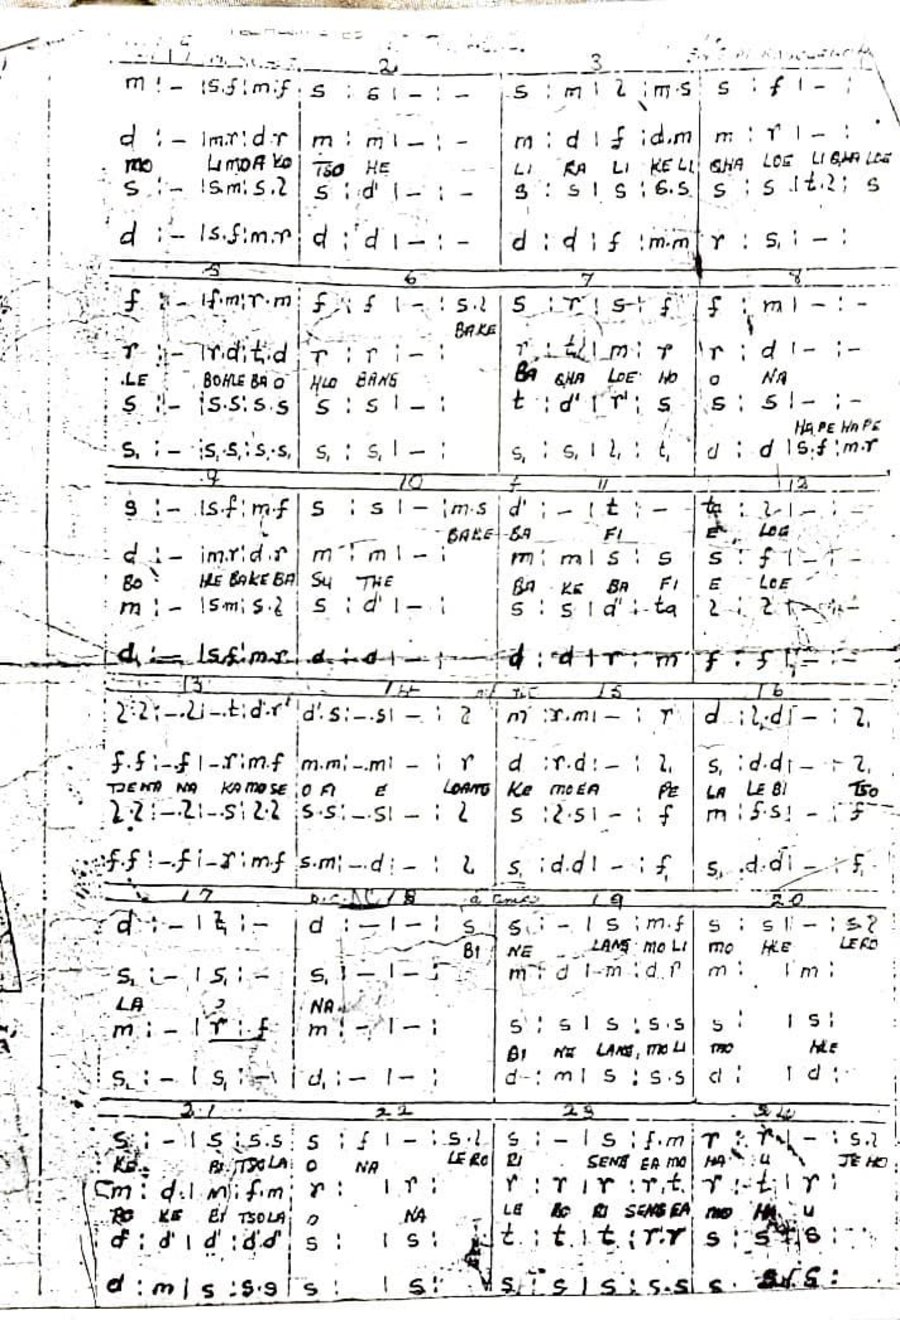 2 3
m : – |s.f:m.f s : s | – : – s : m | l : m.s s : f | – :
d : – |m.r:d.r m : m | – : – m : d | f : d.m m : r | – :
MO LI MO A KO TSO HE LI RA LI KE LI QHA LOE LI QHA LOE
s : – |s.m:s.l s : d' | – : – s : s | s : s.s s : s | t.l : s
d : – |s.f:m.r d : d | – : – d : d | f : m.m r : s, | – :
5 6 7 8
f : – |f.m:r.m f : f | – : s.l s : r | s : f f : m | – : –
BAKE
r : – |r.d:t,.d r : r | – : r : t, | m : r r : d | – : –
LE BOHLE BA O HLO BANG BA QHA LOE HO O NA
s : – |s.s:s.s s : s | – : t : d' | r' : s s : s | – : –
HAPE HAPE
s, : – |s,.s,:s,.s, s, : s, | – : s, : s, | l, : t, d : d |s.f:m.r
9 10 11 12
s : – |s.f:m.f s : s | – : m.s d' : – | t : – ta : l | – : –
BAKE BA FI E LOE
d : – |m.r:d.r m : m | – : m : m | s : s s : f | – : –
BO HLE BAKE BA SU THE BA KE BA FI E LOE
m : – |s.m:s.l s : d' | – : s : s | d' : ta l : l | – : –
d : – |s.f:m.r d : d | – : d : d | r : m f : f | – : –
13 14 15 16
l.l:–.l|–.t:d'.r' d'.s:–.s|– : l m :r.m|– : r d :l,.d|– : l,
f.f:–.f|–.r:m.f m.m:–.m|– : r d :r.d|– : l, s, :d.d|– : l,
TJENA NA KA MO SE O FI E LOANG KE MOEA PE LA LE BI TSO
l.l:–.l|–.s:l.l s.s:–.s|– : l s :l.s|– : f m :f.s|– : f
f.f:–.f|–.r:m.f s.m:–.d|– : l s, :d.d|– : f, s, :d.d|– : f,
17 18 a tempo 19 20
d : – | t, : – d : – | – : s s : – | s : m.f s : s | – : s.l
BI NE LANG MO LI MO HLE LE RO
s, : – | s, : – s, : – | – : m : d | m : d.r m : | m :
LA NA
m : – | r : f m : – | – : s : s | s : s.s s : | s :
BI NE LANG, MO LI MO HLE
s, : – | s, : – d, : – | – : d : m | s : s.s d : | d :
21 22 23 24
s : – | s : s.s s : f | – : s.l s : – | s : f.m r : r | – : s.l
KE BI TSO LA O NA LE RO RI SENG EA MO HA U JE HO
m : d | m : f.m r : | r : r : r | r : r.t, r : t | r :
RO KE BI TSO LA O NA LE RO RI SENG EA MO HA U
d' : d' | d' : d'.d' s : | s : t : t | t : r.r s : s | s :
d : m | s : s.s s : | s : s : s | s : s.s s : s | s :